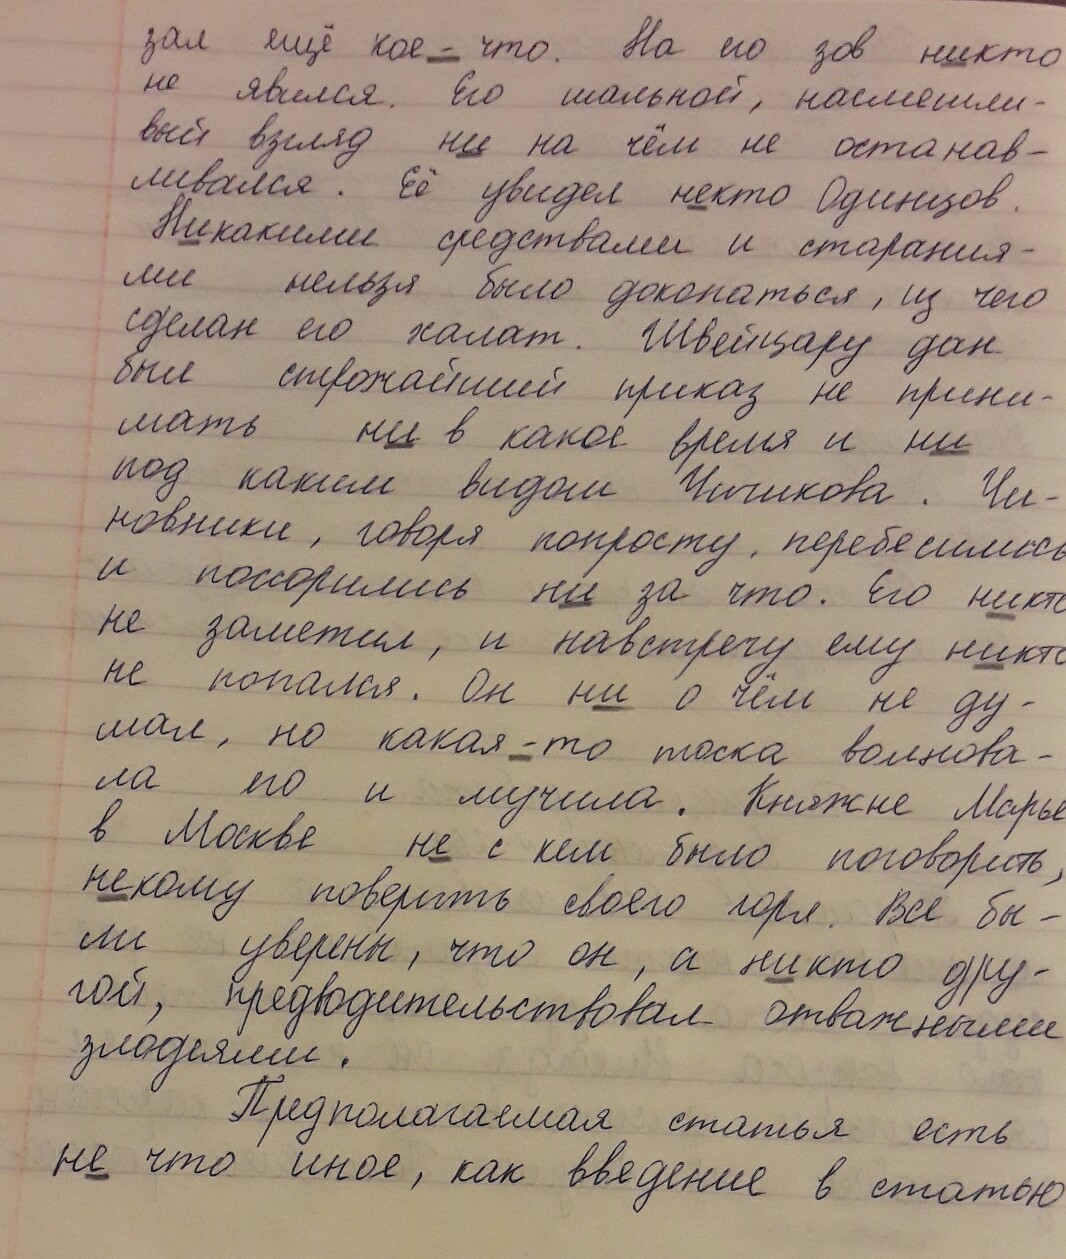 зал ещё кое-что. На его зов никто
не явился. Его шальной, насмешли-
вый взгляд ни на чём не останав-
ливался. Её увидел некто Одинцов.
Никакими средствами и старания-
ми нельзя было докопаться, из чего
сделан его халат. Швейцару дан
был строжайший приказ не прини-
мать ни в какое время и ни
под каким видом Чичикова. Чи-
новники, говоря попросту, перебесились
и поссорились ни за что. Его никто
не заметил, и навстречу ему никто
не попался. Он ни о чём не ду-
мал, но какая-то тоска волнова-
ла его и мучила. Княжне Марье
в Москве не с кем было поговорить,
некому поверить своего горя. Все бы-
ли уверены, что он, а никто дру-
гой, предводительствовал отважными
злодеями.
Предполагаемая статья есть
не что иное, как введение в статью